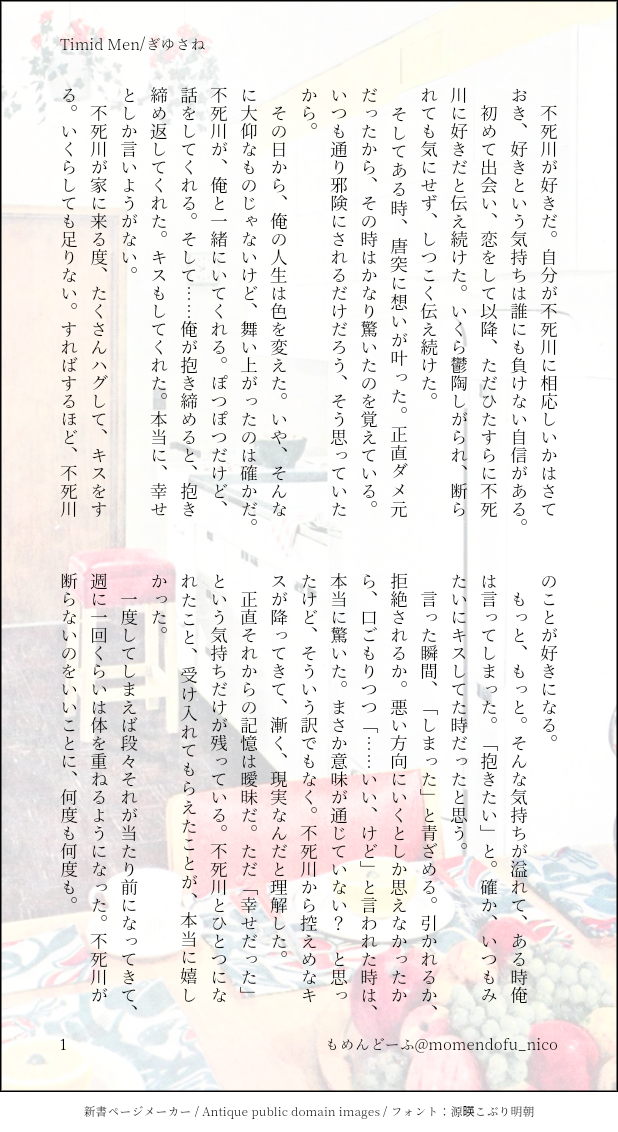 Timid Men/ぎゆさね
　不死川が好きだ。自分が不死川に相応しいかはさて
おき、好きという気持ちは誰にも負けない自信がある。
　初めて出会い、恋をして以降、ただひたすらに不死
川に好きだと伝え続けた。いくら鬱陶しがられ、断ら
れても気にせず、しつこく伝え続けた。
　そしてある時、唐突に想いが叶った。正直ダメ元
だったから、その時はかなり驚いたのを覚えている。
いつも通り邪険にされるだけだろう、そう思っていた
から。
　その日から、俺の人生は色を変えた。いや、そんな
に大仰なものじゃないけど、舞い上がったのは確かだ。
不死川が、俺と一緒にいてくれる。ぽつぽつだけど、
話をしてくれる。そして……俺が抱き締めると、抱き
締め返してくれた。キスもしてくれた。本当に、幸せ
としか言いようがない。
　不死川が家に来る度、たくさんハグして、キスをす
る。いくらしても足りない。すればするほど、不死川
のことが好きになる。
　もっと、もっと。そんな気持ちが溢れて、ある時俺
は言ってしまった。「抱きたい」と。確か、いつもみ
たいにキスしてた時だったと思う。
　言った瞬間、「しまった」と青ざめる。引かれるか、
拒絶されるか。悪い方向にいくとしか思えなかったか
ら、口ごもりつつ「……いい、けど」と言われた時は、
本当に驚いた。まさか意味が通じていない？　と思っ
たけど、そういう訳でもなく。不死川から控えめなキ
スが降ってきて、漸く、現実なんだと理解した。
　正直それからの記憶は曖昧だ。ただ「幸せだった」
という気持ちだけが残っている。不死川とひとつにな
れたこと、受け入れてもらえたことが、本当に嬉し
かった。
　一度してしまえば段々それが当たり前になってきて、
週に一回くらいは体を重ねるようになった。不死川が
断らないのをいいことに、何度も何度も。
1
もめんどーふ@momendofu_nico
新書ページメーカー / Antique public domain images / フォント：源暎こぶり明朝